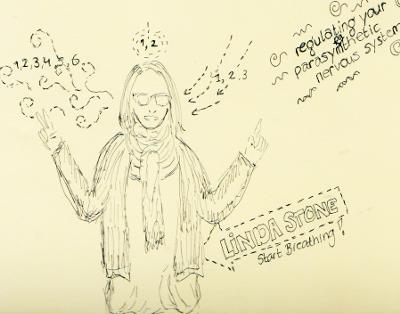 1,2
1,2,3,4,5,6
1,2,3
regulating your
parasympathetic
nervous system
LINDA STONE
Start Breathing!